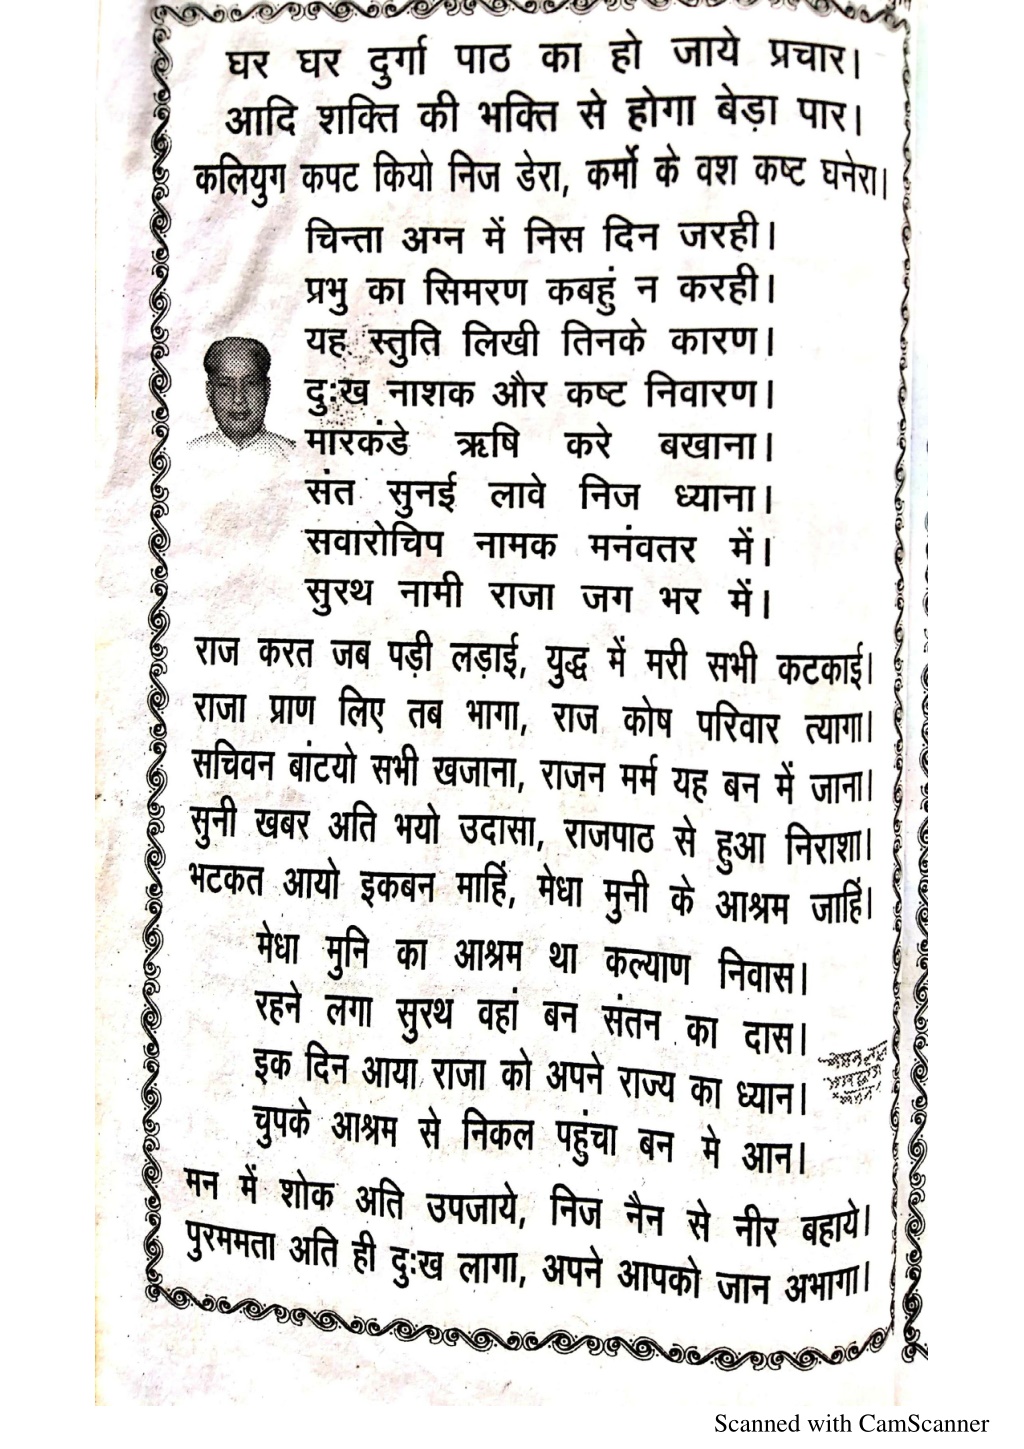 घर घर दुर्गा पाठ का हो जाये प्रचार।
आदि शक्ति की भक्ति से होगा बेड़ा पार।
कलियुग कपट कियो निज डेरा, कर्मो के वश कष्ट घनेरा।
चिन्ता अग्न में निस दिन जरही।
प्रभु का सिमरण कबहुं न करही।
यह स्तुति लिखी तिनके कारण।
दुःख नाशक और कष्ट निवारण।
मारकंडे ऋषि करे बखाना।
संत सुनई लावे निज ध्याना।
सवारोचिप नामक मनंवतर में।
सुरथ नामी राजा जग भर में।
राज करत जब पड़ी लड़ाई, युद्ध में मरी सभी कटकाई।
राजा प्राण लिए तब भागा, राज कोष परिवार त्यागा।
सचिवन बांटयो सभी खजाना, राजन मर्म यह बन में जाना।
सुनी खबर अति भयो उदासा, राजपाठ से हुआ निराशा।
भटकत आयो इकबन माहिं, मेधा मुनी के आश्रम जाहिं।
मेधा मुनि का आश्रम था कल्याण निवास।
रहने लगा सुरथ वहां बन संतन का दास।
इक दिन आया राजा को अपने राज्य का ध्यान।
चुपके आश्रम से निकल पहुंचा बन मे आन।
मन में शोक अति उपजाये, निज नैन से नीर बहाये।
पुरममता अति ही दुःख लागा, अपने आपको जान अभागा।
Scanned with CamScanner